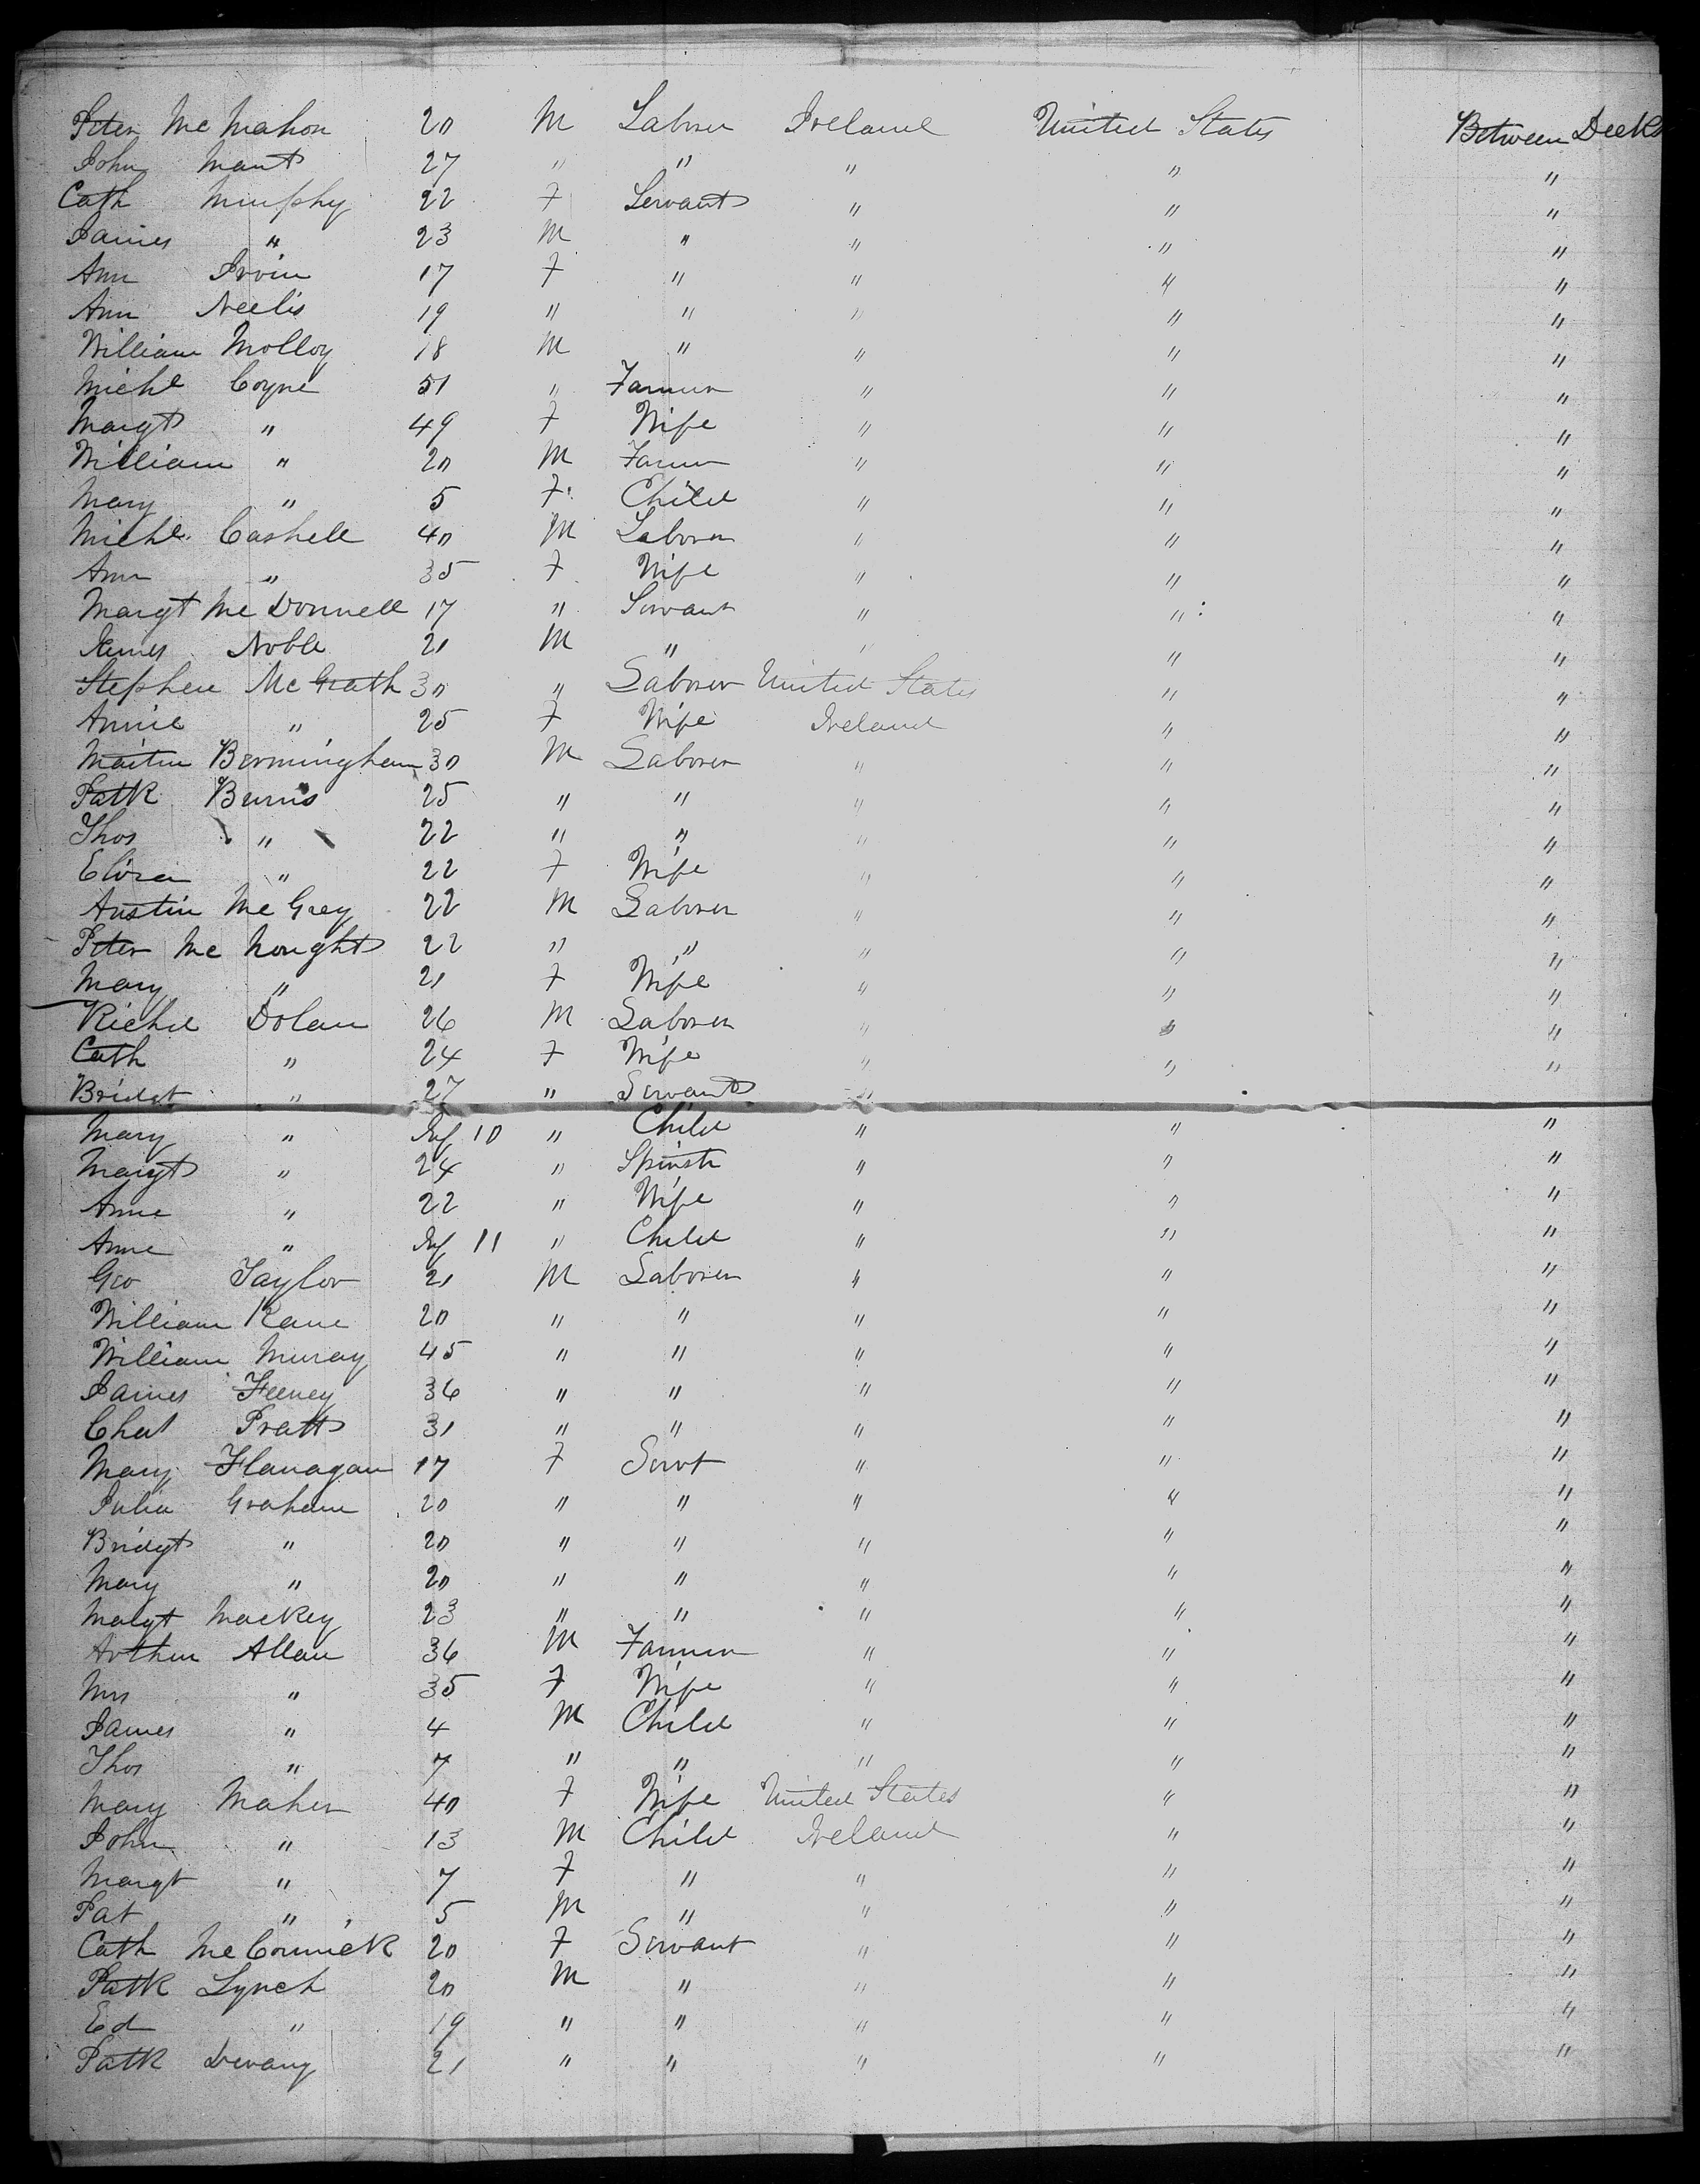 Peter McMahon 20 M Laborer Ireland United States Between Decks
John Mant 27 " " " " "
Cath Murphy 22 F Servant " " "
James " 23 M " " " "
Ann Irvin 17 F " " " "
Ann Neelis 19 " " " " "
William Molloy 18 M " " " "
Michl Coyne 51 " Farmer " " "
Margt " 49 F Wife " " "
William " 20 M Farmer " " "
Mary " 5 F Child " " "
Michl. Cashell 40 M Laborer " " "
Ann " 35 F Wife " " "
Margt McDonnell 17 " Servant " " "
James Noble 21 M " " " "
Stephen McGrath 30 " Laborer United States " "
Annie " 25 F Wife Ireland " "
Martin Bermingham 30 M Laborer " " "
Patk Burns 25 " " " " "
Thos " 22 " " " " "
Eliza " 22 F Wife " " "
Austin McGrey 22 M Laborer " " "
Peter McNought 22 " " " " "
Mary " 21 F Wife " " "
Richd Dolan 26 M Laborer " " "
Cath " 24 F Wife " " "
Bridgt " 27 " Servant "
Mary " Inf 10 " Child " " "
Margt " 24 " Spinstr " " "
Anne " 22 " Wife " " "
Anne " Inf 11 " Child " " "
Geo Taylor 21 M Laborer " " "
William Kane 20 " " " " "
William Muray 45 " " " " "
James Feeney 36 " " " " "
Chas Pratt 31 " " " " "
Mary Flanagan 17 F Servt " " "
Julia Graham 20 " " " " "
Bridgt " 20 " " " " "
Mary " 20 " " " " "
Margt Mackey 23 " " " " "
Arthur Allan 36 M Farmer " " "
Mrs " 35 F Wife " " "
James " 4 M Child " " "
Thos " 7 " " " " "
Mary Maher 40 F Wife United States " "
John " 13 M Child Ireland " "
Margt " 7 F " " " "
Pat " 5 M " " " "
Cath McCormick 20 F Servant " " "
Patk Lynch 20 M " " " "
Ed " 19 " " " " "
Patk Devany 21 " " " " "